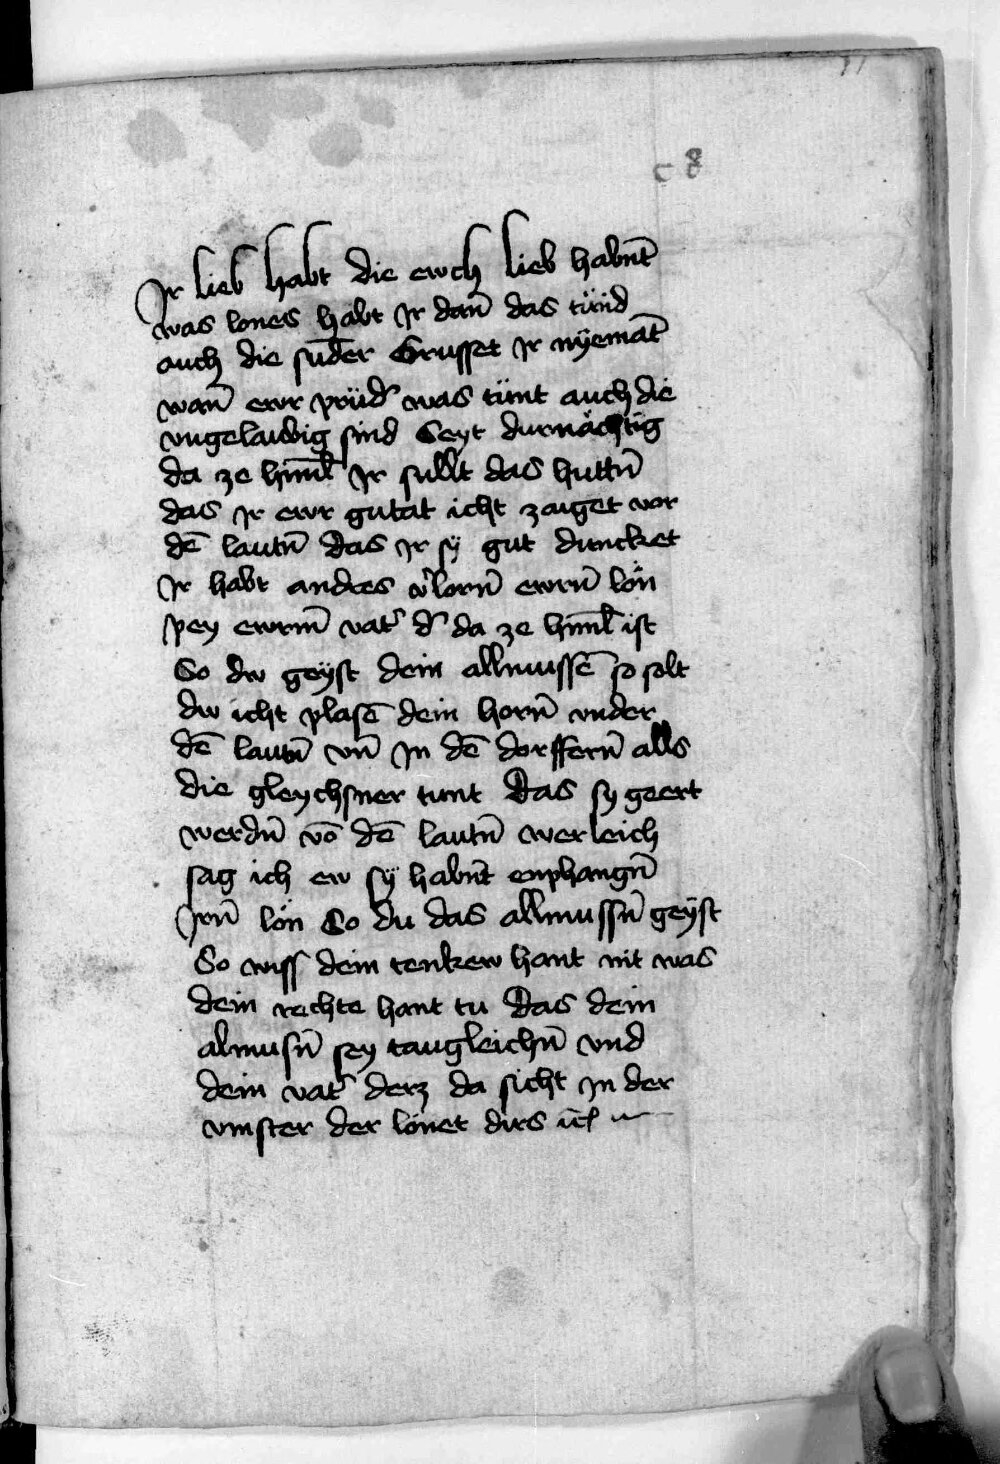 Jr lieb habt die ewch lieb habn̄t
was lones habt Jr dan̄ das tünd
auch die sūder Grusset Jr nÿemāt
wan̄ ewr prüd̉ was tünt auch die
vngelaubig sind Seyt durnächtig
da ze himl̄ Jr sullt das huttn̄
das Jr ewr gutat icht zaiget vor
dē lautn̄ das Jr sÿ gut duncket
Jr habt andres v̉lorn̄ ewrn̄ lön
pey ewrm̄ vat̉ d̉ da ze himl̄ ist
So dw geÿst dein allmussē so solt
dw icht plasē dein horn̄ vnder
dē lautn̄ vn̄ Jn dē dorffern̄ alls
die gleychsner tunt das sy geert
werdn̄ vō dē lautn̄ werleich
sag ich ew sÿ habn̄t enphangn̄
Jrn̄ lön So du das allmussn̄ geÿst
So wiss dein tenkew hant nit was
dein rechte hant tu das dein
almusn̄ sey taugleichn̄ vnd
dein vat̉ derz da sicht Jn der
vinster der lönet dirs